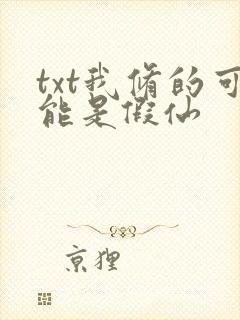 txt我修的可
能是假仙
京狸